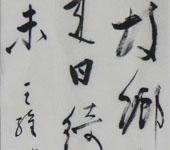 故鄉
来日綺
未
王維